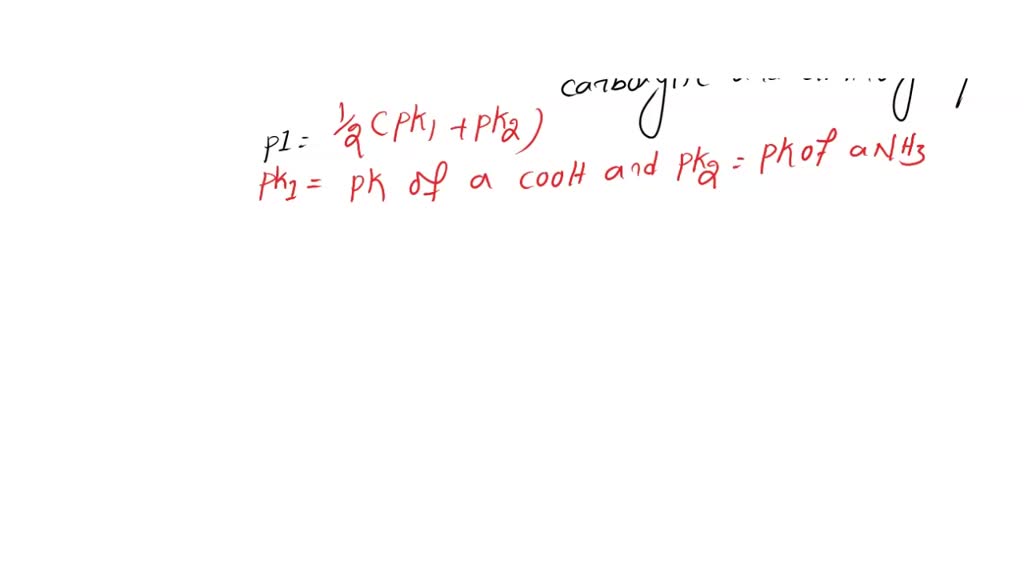 carboxylic
pI = 1/2 (pk1 + pk2)
pk1 = pk of a COOH and pk2 = pk of a NH3